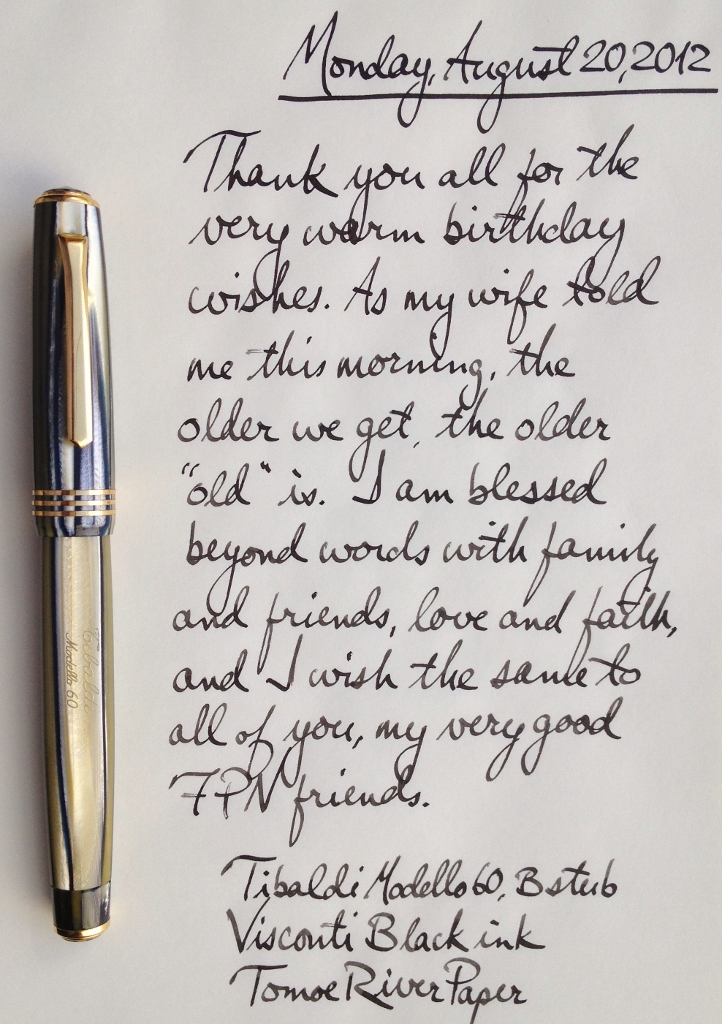 Monday, August 20, 2012
Thank you all for the
very warm birthday
wishes. As my wife told
me this morning, the
older we get, the older
"old" is. I am blessed
beyond words with family
and friends, love and faith,
and I wish the same to
all of you, my very good
FPN friends.
Tibaldi Modello 60, B stub
Visconti Black ink
Tomoe River Paper
Tibaldi
Modello 60